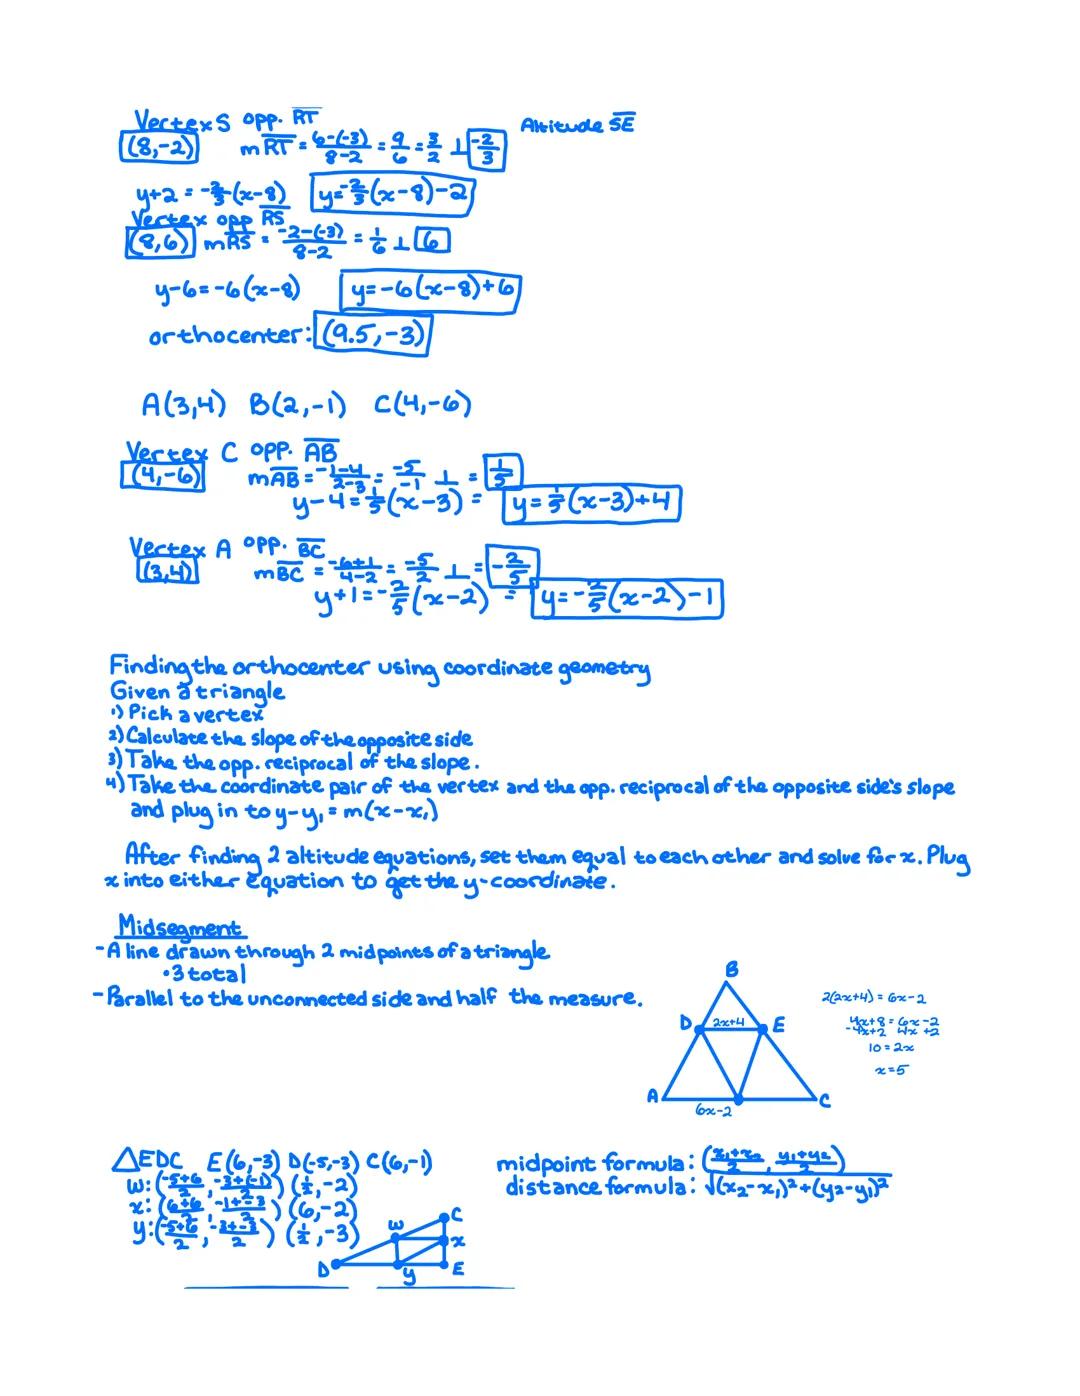 Vertex S opp. RT Altitude SE
(8,-2) mRT = 6-(-3)/8-2 = 9/6 = 3/2 ⊥ -2/3
y+2 = -2/3(x-8) y=-2/3(x-8)-2
Vertex opp RS
(8,6) mRS = -2-(-3)/8-2 = 1/6 ⊥ 6
y-6=-6(x-8) y=-6(x-8)+6
orthocenter: (9.5,-3)
A(3,4) B(2,-1) C(4,-6)
Vertex C opp. AB
(4,-6) mAB = -1-4/2-3 = -5/-1 ⊥ = 1/5
y-4=1/5(x-3) = y=1/5(x-3)+4
Vertex A opp. BC
(3,4) mBC = -6+1/4-2 = -5/2 ⊥ = -2/5
y+1=-2/5(x-2) = y=-2/5(x-2)-1
Finding the orthocenter using coordinate geometry
Given a triangle
1) Pick a vertex
2) Calculate the slope of the opposite side
3) Take the opp. reciprocal of the slope.
4) Take the coordinate pair of the vertex and the opp. reciprocal of the opposite side's slope
and plug in to y-y₁=m(x-x₁)
After finding 2 altitude equations, set them equal to each other and solve for x. Plug
x into either equation to get the y-coordinate.
Midsegment
-A line drawn through 2 midpoints of a triangle
•3 total
-Parallel to the unconnected side and half the measure.
B
D 2x+4 E
A C
6x-2
2(2x+4)=6x-2
4x+8=6x-2
-4x+2 4x+2
10=2x
x=5
△EDC E(6,-3) D(-5,-3) C(6,-1)
w:(-5+6/2, -3+(-1)/2) (1/2,-2)
x:(6+6/2, -1+-3/2) (6,-2)
y:(-5+6/2, -3+-3/2) (1/2,-3)
C
w
x
D y E
midpoint formula: (x₁+x₂/2, y₁+y₂/2)
distance formula: √(x₂-x₁)²+(y₂-y₁)²